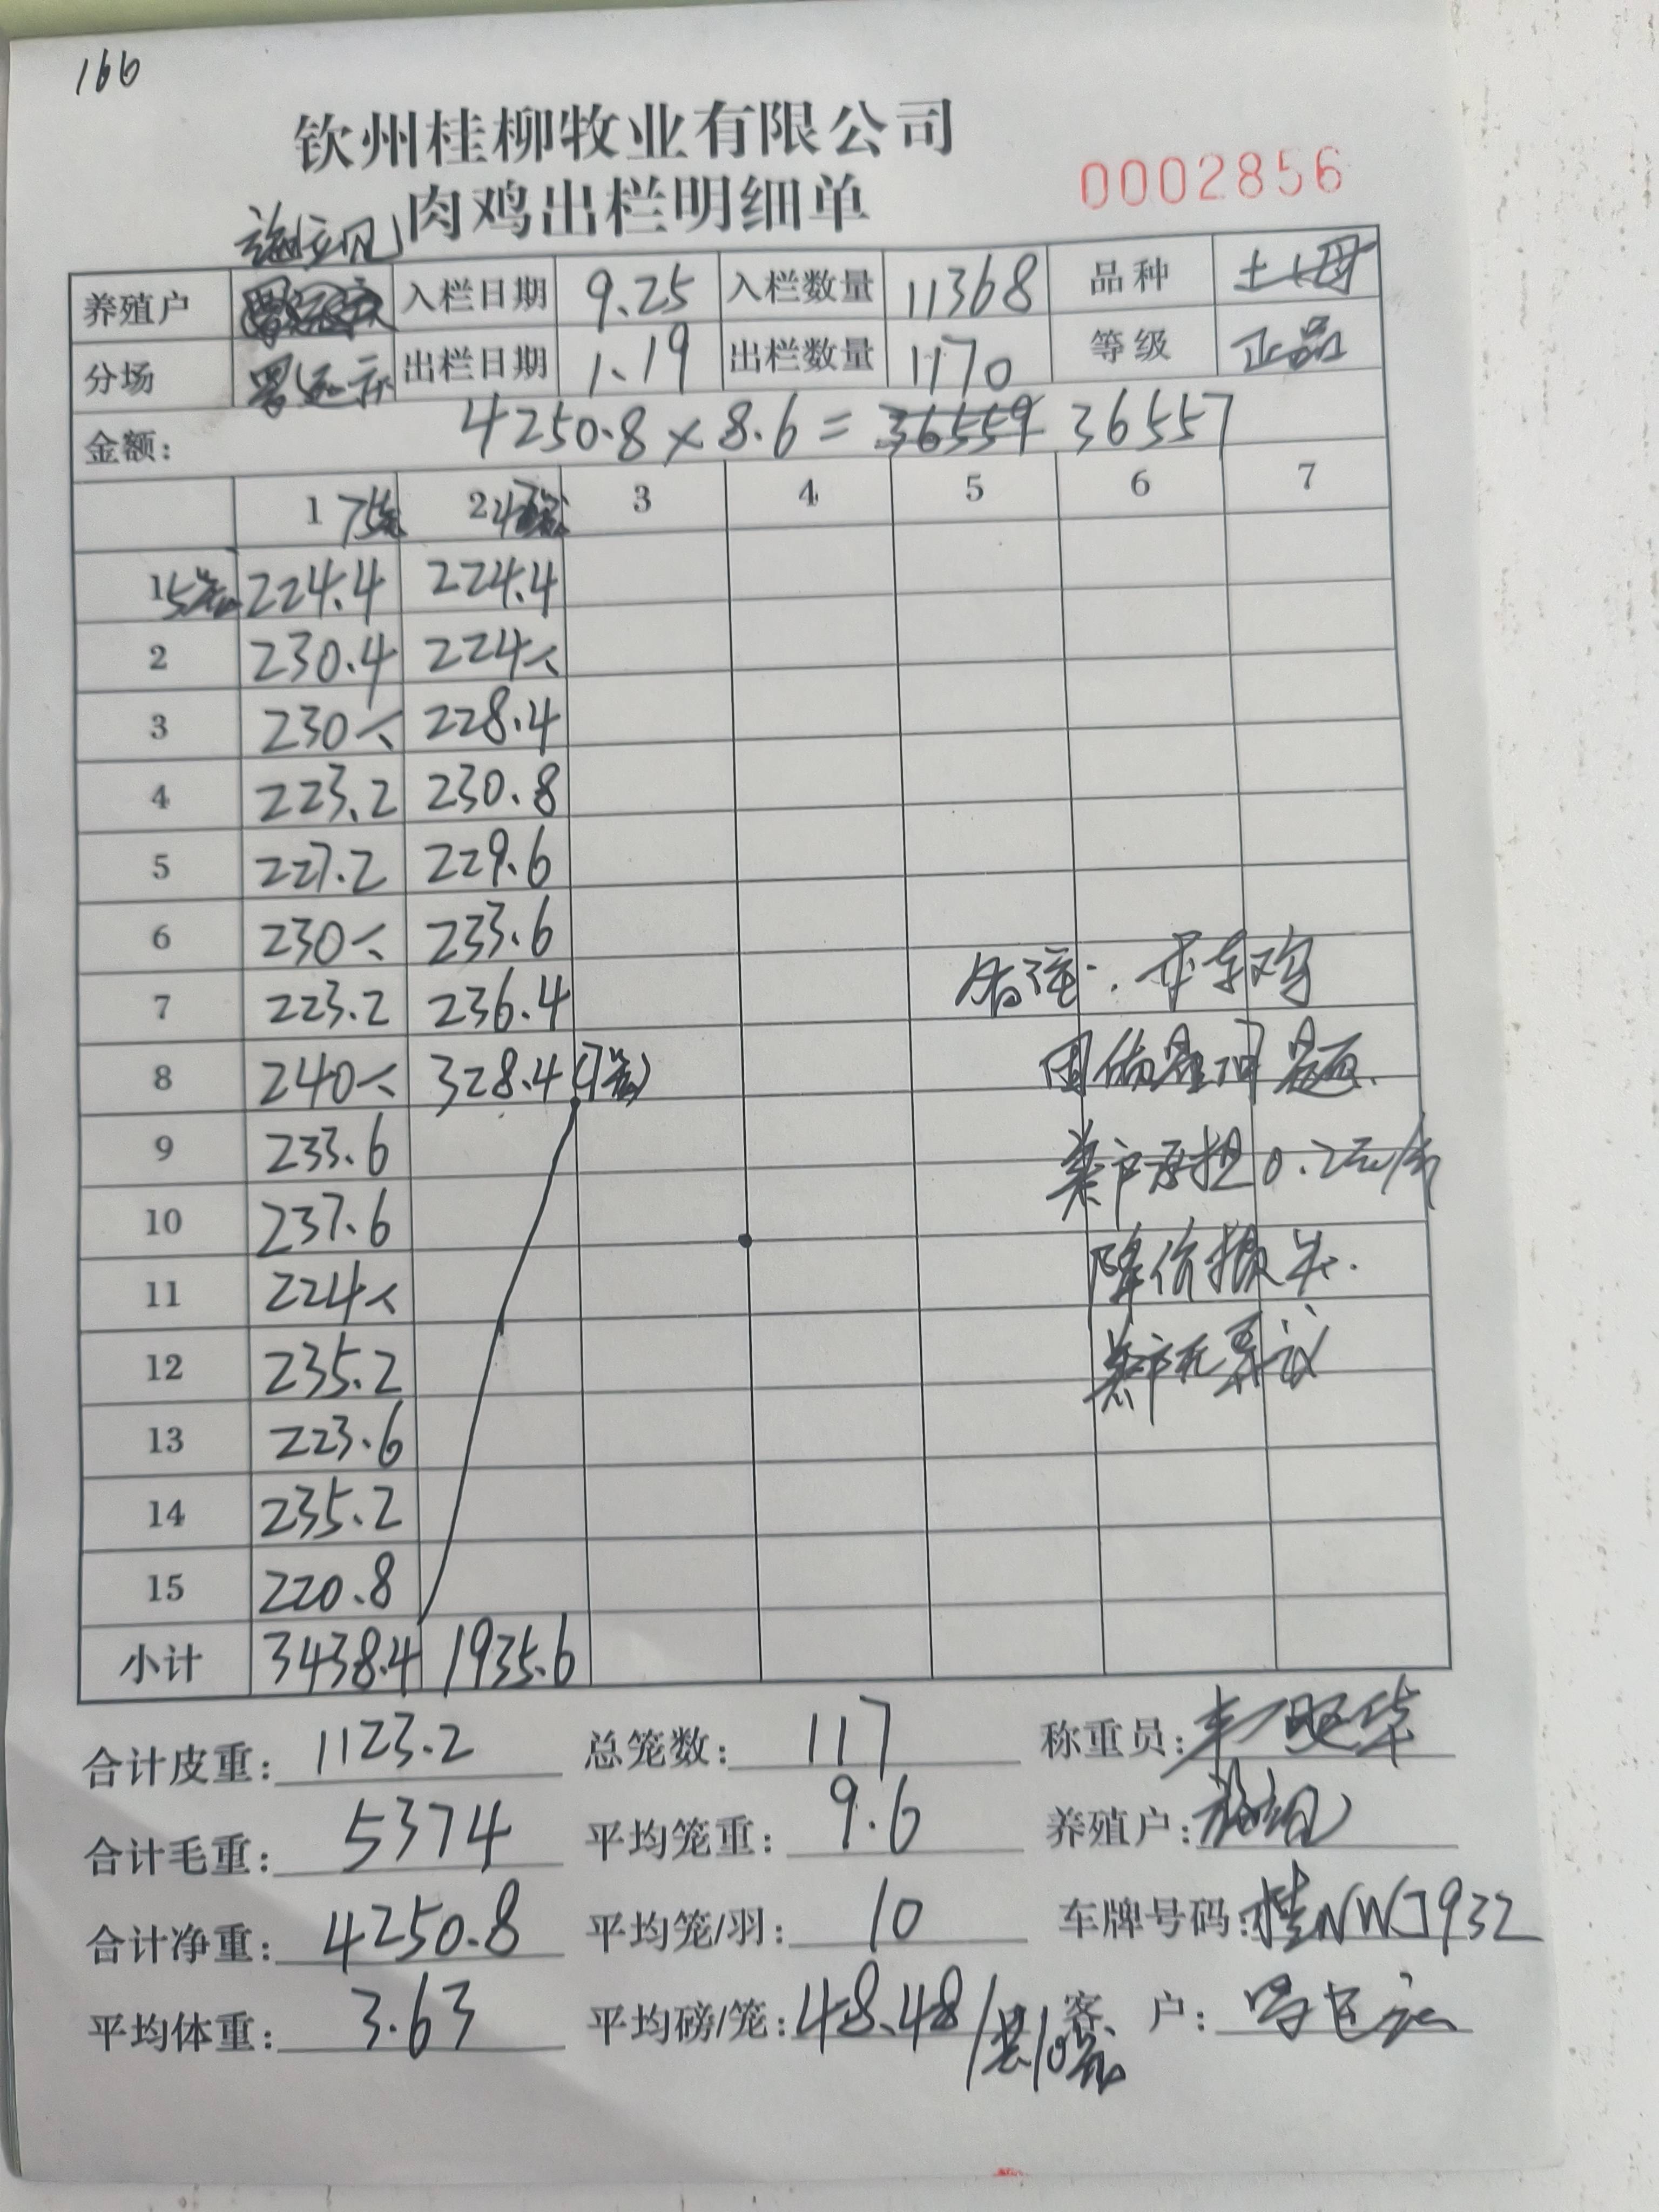 166
钦州桂柳牧业有限公司
肉鸡出栏明细单 0002856
养殖户 入栏日期 9.25 入栏数量 11368 品种 土2母
分场 出栏日期 1.19 出栏数量 1170 等级 正品
金额: 4250.8×8.6= 36559 36557
1 75笼 2 42笼 3 4 5 6 7
1 5笼 224.4 224.4
2 230.4 224
3 230 228.4
4 223.2 230.8
5 227.2 229.6
6 230 233.6
7 223.2 236.4
8 240 328.4 (7笼)
9 233.6
10 237.6
11 224
12 235.2
13 223.6
14 235.2
15 220.8
备注: 本车鸡
因伤残问题
养户承担0.2元/斤
降价损失.
养户无异议
小计 3438.4 1935.6
合计皮重: 1123.2 总笼数: 117 称重员:
合计毛重: 5374 平均笼重: 9.6 养殖户:
合计净重: 4250.8 平均笼/羽: 10 车牌号码: 桂NWJ932
平均体重: 3.63 平均磅/笼: 48.48/ 客 户: